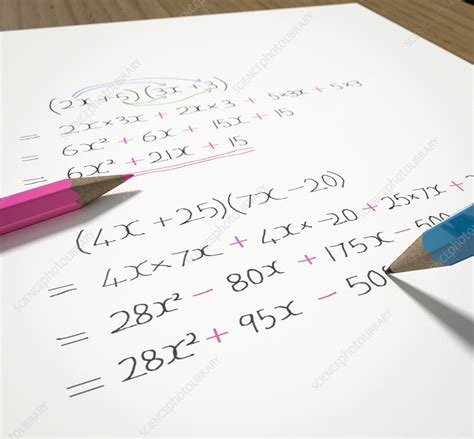 (2x+5)(3x+3)
= 2x×3x + 2x×3 + 5×3x + 5×3
= 6x² + 6x + 15x + 15
= 6x² + 21x + 15
(4x +25)(7x −20)
= 4x×7x + 4x×-20 + 25×7x + 2
= 28x² − 80x + 175x − 500
= 28x² + 95x − 50
SCIENCEPHOTOLIBRARY